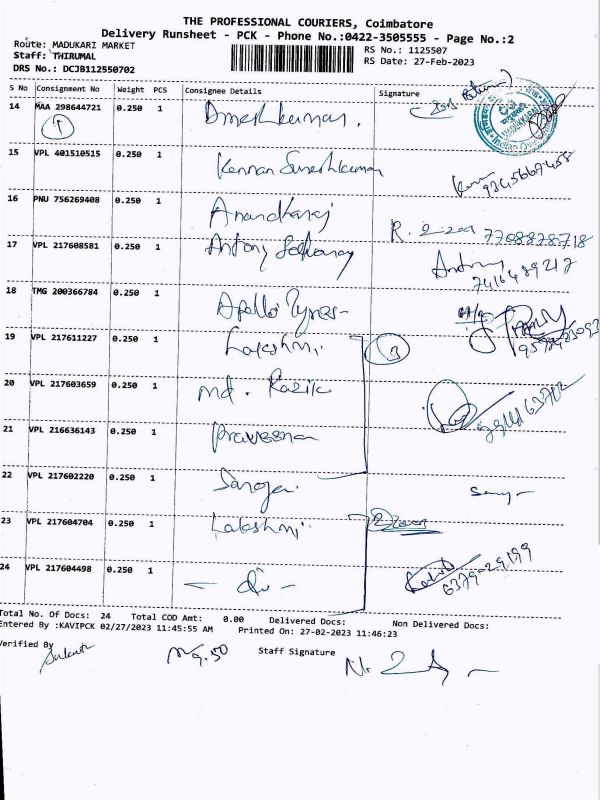 THE PROFESSIONAL COURIERS, Coimbatore
Delivery Runsheet - PCK - Phone No.:0422-3505555 - Page No.:2
Route: MADUKARI MARKET
Staff: THIRUMAL
DRS No.: DCJB112550702
RS No.: 1125507
RS Date: 27-Feb-2023
S No Consignment No Weight PCS Consignee Details Signature
14 MAA 298644721 0.250 1 Dmeshkumar.
1
15 VPL 401510515 0.250 1 Kannan Sureshkumar
9345667458
16 PNU 756269408 0.250 1 Anandharaj
R. 7708878718
17 VPL 217608581 0.250 1 Antony
Antony
7416489217
18 TMG 200366784 0.250 1 Apollo Tyres-
19 VPL 217611227 0.250 1 Lakshmi 3
20 VPL 217603659 0.250 1 Md. Razik
21 VPL 216636143 0.250 1 Praveena
22 VPL 217602220 0.250 1 Saroja
23 VPL 217604704 0.250 1 Lakshmi
24 VPL 217604498 0.250 1 - Do -
6379-29199
Total No. Of Docs: 24 Total COD Amt: 0.00 Delivered Docs: Non Delivered Docs:
Entered By :KAVIPCK 02/27/2023 11:45:55 AM Printed On: 27-02-2023 11:46:23
Verified By Staff Signature